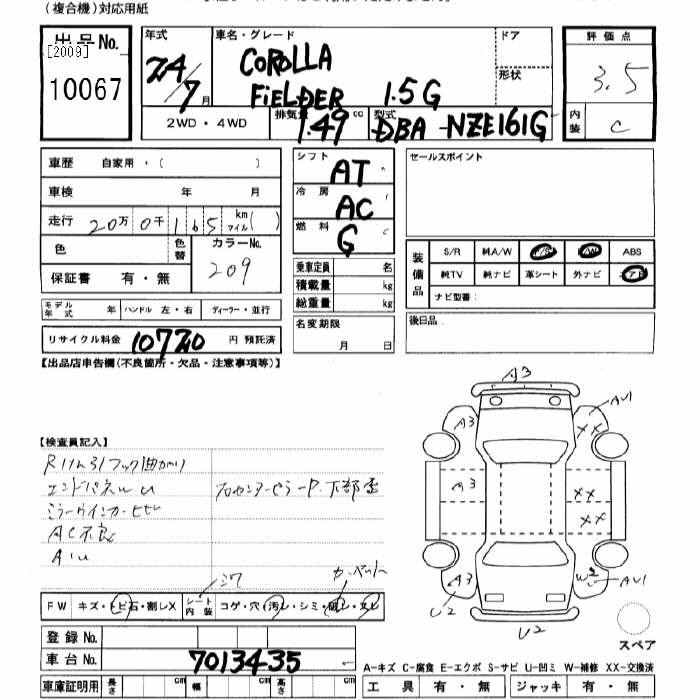 (複合機)対応用紙
出品No.
[2009]
10067
年式
24/7月
車名・グレード
COROLLA
FiELDER 1.5G
ドア
形状
評価点
3.5
内装
C
2WD・4WD
排気量
1.49 cc
型式
DBA-NZE161G
車歴 自家用・( )
車検 年 月
走行 20万0千165 km マイル( )
色
色替
カラーNo.
209
保証書 有・無
モデル年式 年 ハンドル 左・右 ディーラー・並行
リサイクル料金 10720 円 預託済
シフト AT
冷房 AC
燃料 G
乗車定員 名
積載量 kg
総重量 kg
名変期限
月 日
セールスポイント
装備品
S/R 純A/W P/S P/W ABS
純TV 純ナビ 革シート 外ナビ エアB
ナビ型番:
後日品
【出品店申告欄(不良箇所・欠品・注意事項等)】
【検査員記入】
エンドパネルU
ミラーウインカーヒビ
AC不良
A1U
シワ
カーペット
FW キズ・トビ石・割レX
シート内装 コゲ・穴・汚レ・シミ・破レ・スレ
登録No.
車台No.
7013435
車庫証明用 長さ cm 幅 cm 高さ cm
A3
A3
AU1
XX
A3
XX
XX
A3
W2
AU1
U2
U2
スペア
A-キズ C-腐食 E-エクボ S-サビ U-凹ミ W-補修 XX-交換済
工具 有・無 ジャッキ 有・無